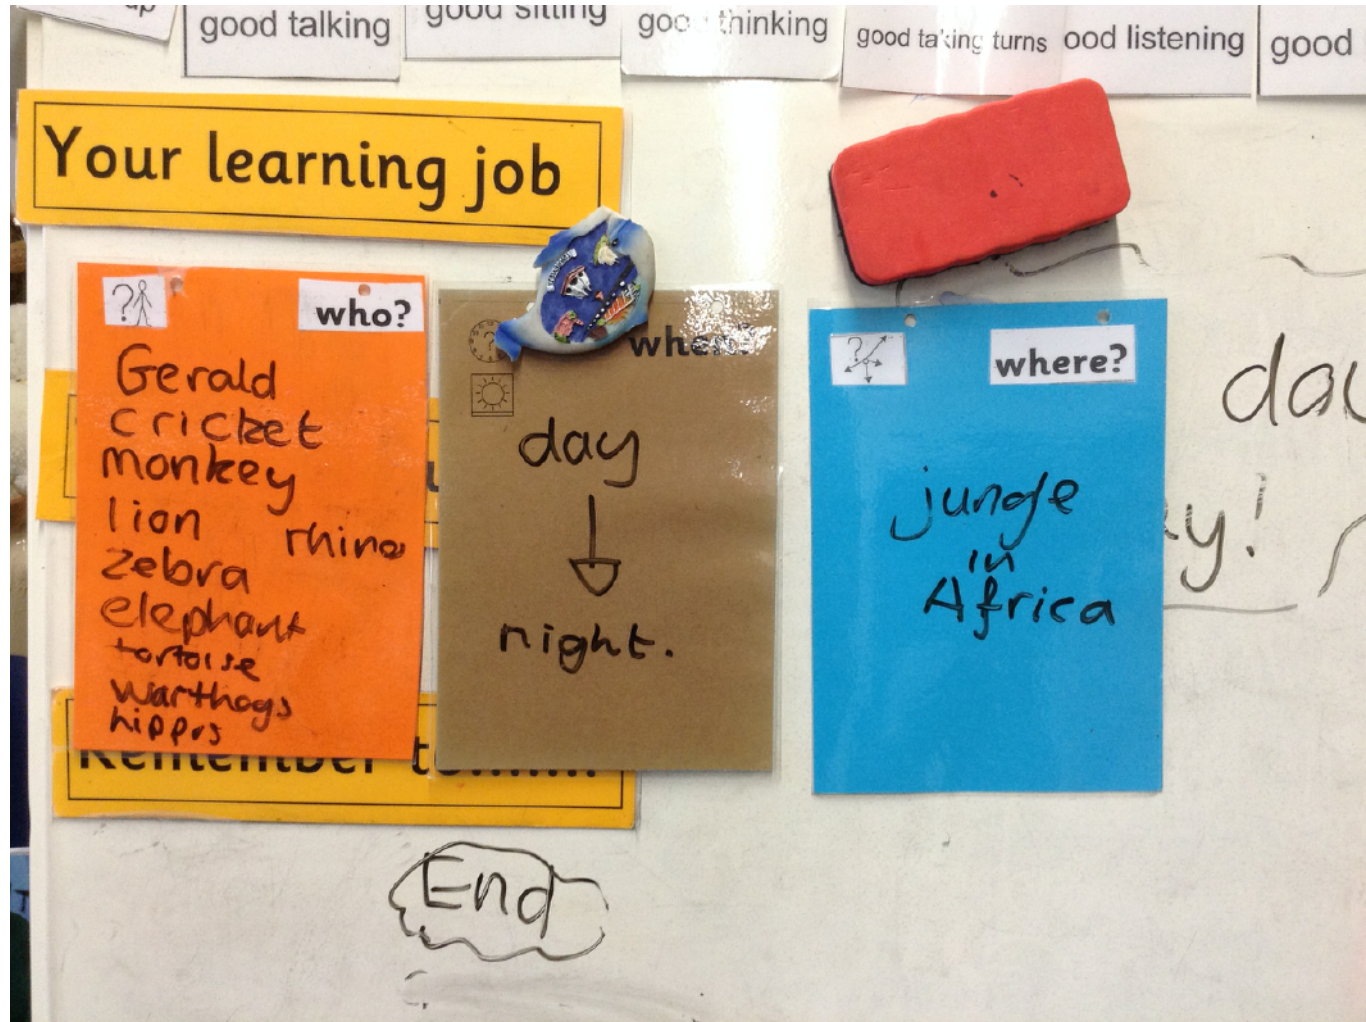 up
good talking
good sitting
good thinking
good taking turns
ood listening
good
Your learning job
who?
Gerald
cricket
monkey
lion
rhino
zebra
elephant
tortoise
warthogs
hippos
when?
day
night.
where?
jungle
in
Africa
day
y!
Remember to.......
End